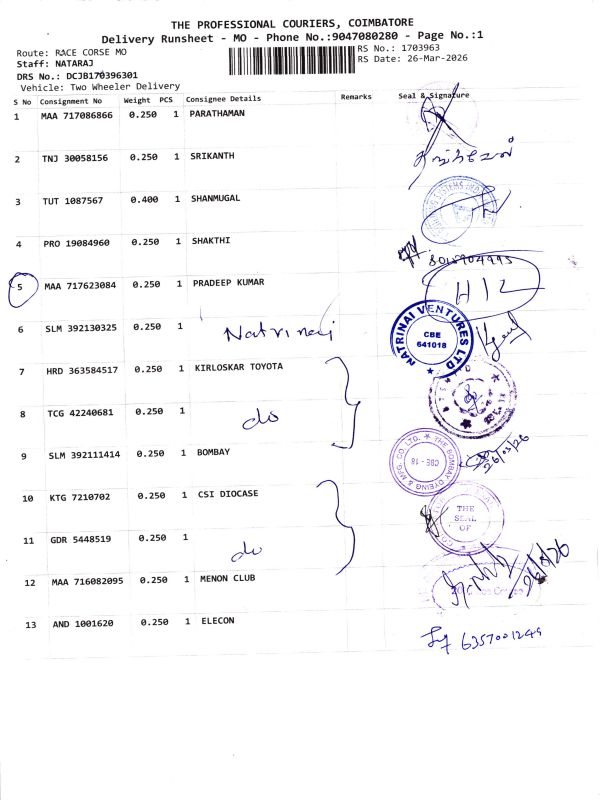 THE PROFESSIONAL COURIERS, COIMBATORE
Delivery Runsheet - MO - Phone No.:9047080280 - Page No.:1
Route: RACE CORSE MO
Staff: NATARAJ
DRS No.: DCJB170396301
Vehicle: Two Wheeler Delivery
RS No.: 1703963
RS Date: 26-Mar-2026
S No Consignment No Weight PCS Consignee Details Remarks Seal & Signature
1 MAA 717086866 0.250 1 PARATHAMAN
2 TNJ 30058156 0.250 1 SRIKANTH
3 TUT 1087567 0.400 1 SHANMUGAL
4 PRO 19084960 0.250 1 SHAKTHI
5 MAA 717623084 0.250 1 PRADEEP KUMAR
H12
6 SLM 392130325 0.250 1 Natrinai
NATRINAI VENTURES LTD
CBE
641018
7 HRD 363584517 0.250 1 KIRLOSKAR TOYOTA
8 TCG 42240681 0.250 1 do
9 SLM 392111414 0.250 1 BOMBAY
THE BOMBAY DYEING & MFG CO. LTD.
CBE - 18
26/03/26
10 KTG 7210702 0.250 1 CSI DIOCASE
THE
SEAL
OF
11 GDR 5448519 0.250 1 do
12 MAA 716082095 0.250 1 MENON CLUB
26/3/26
13 AND 1001620 0.250 1 ELECON
6357001249